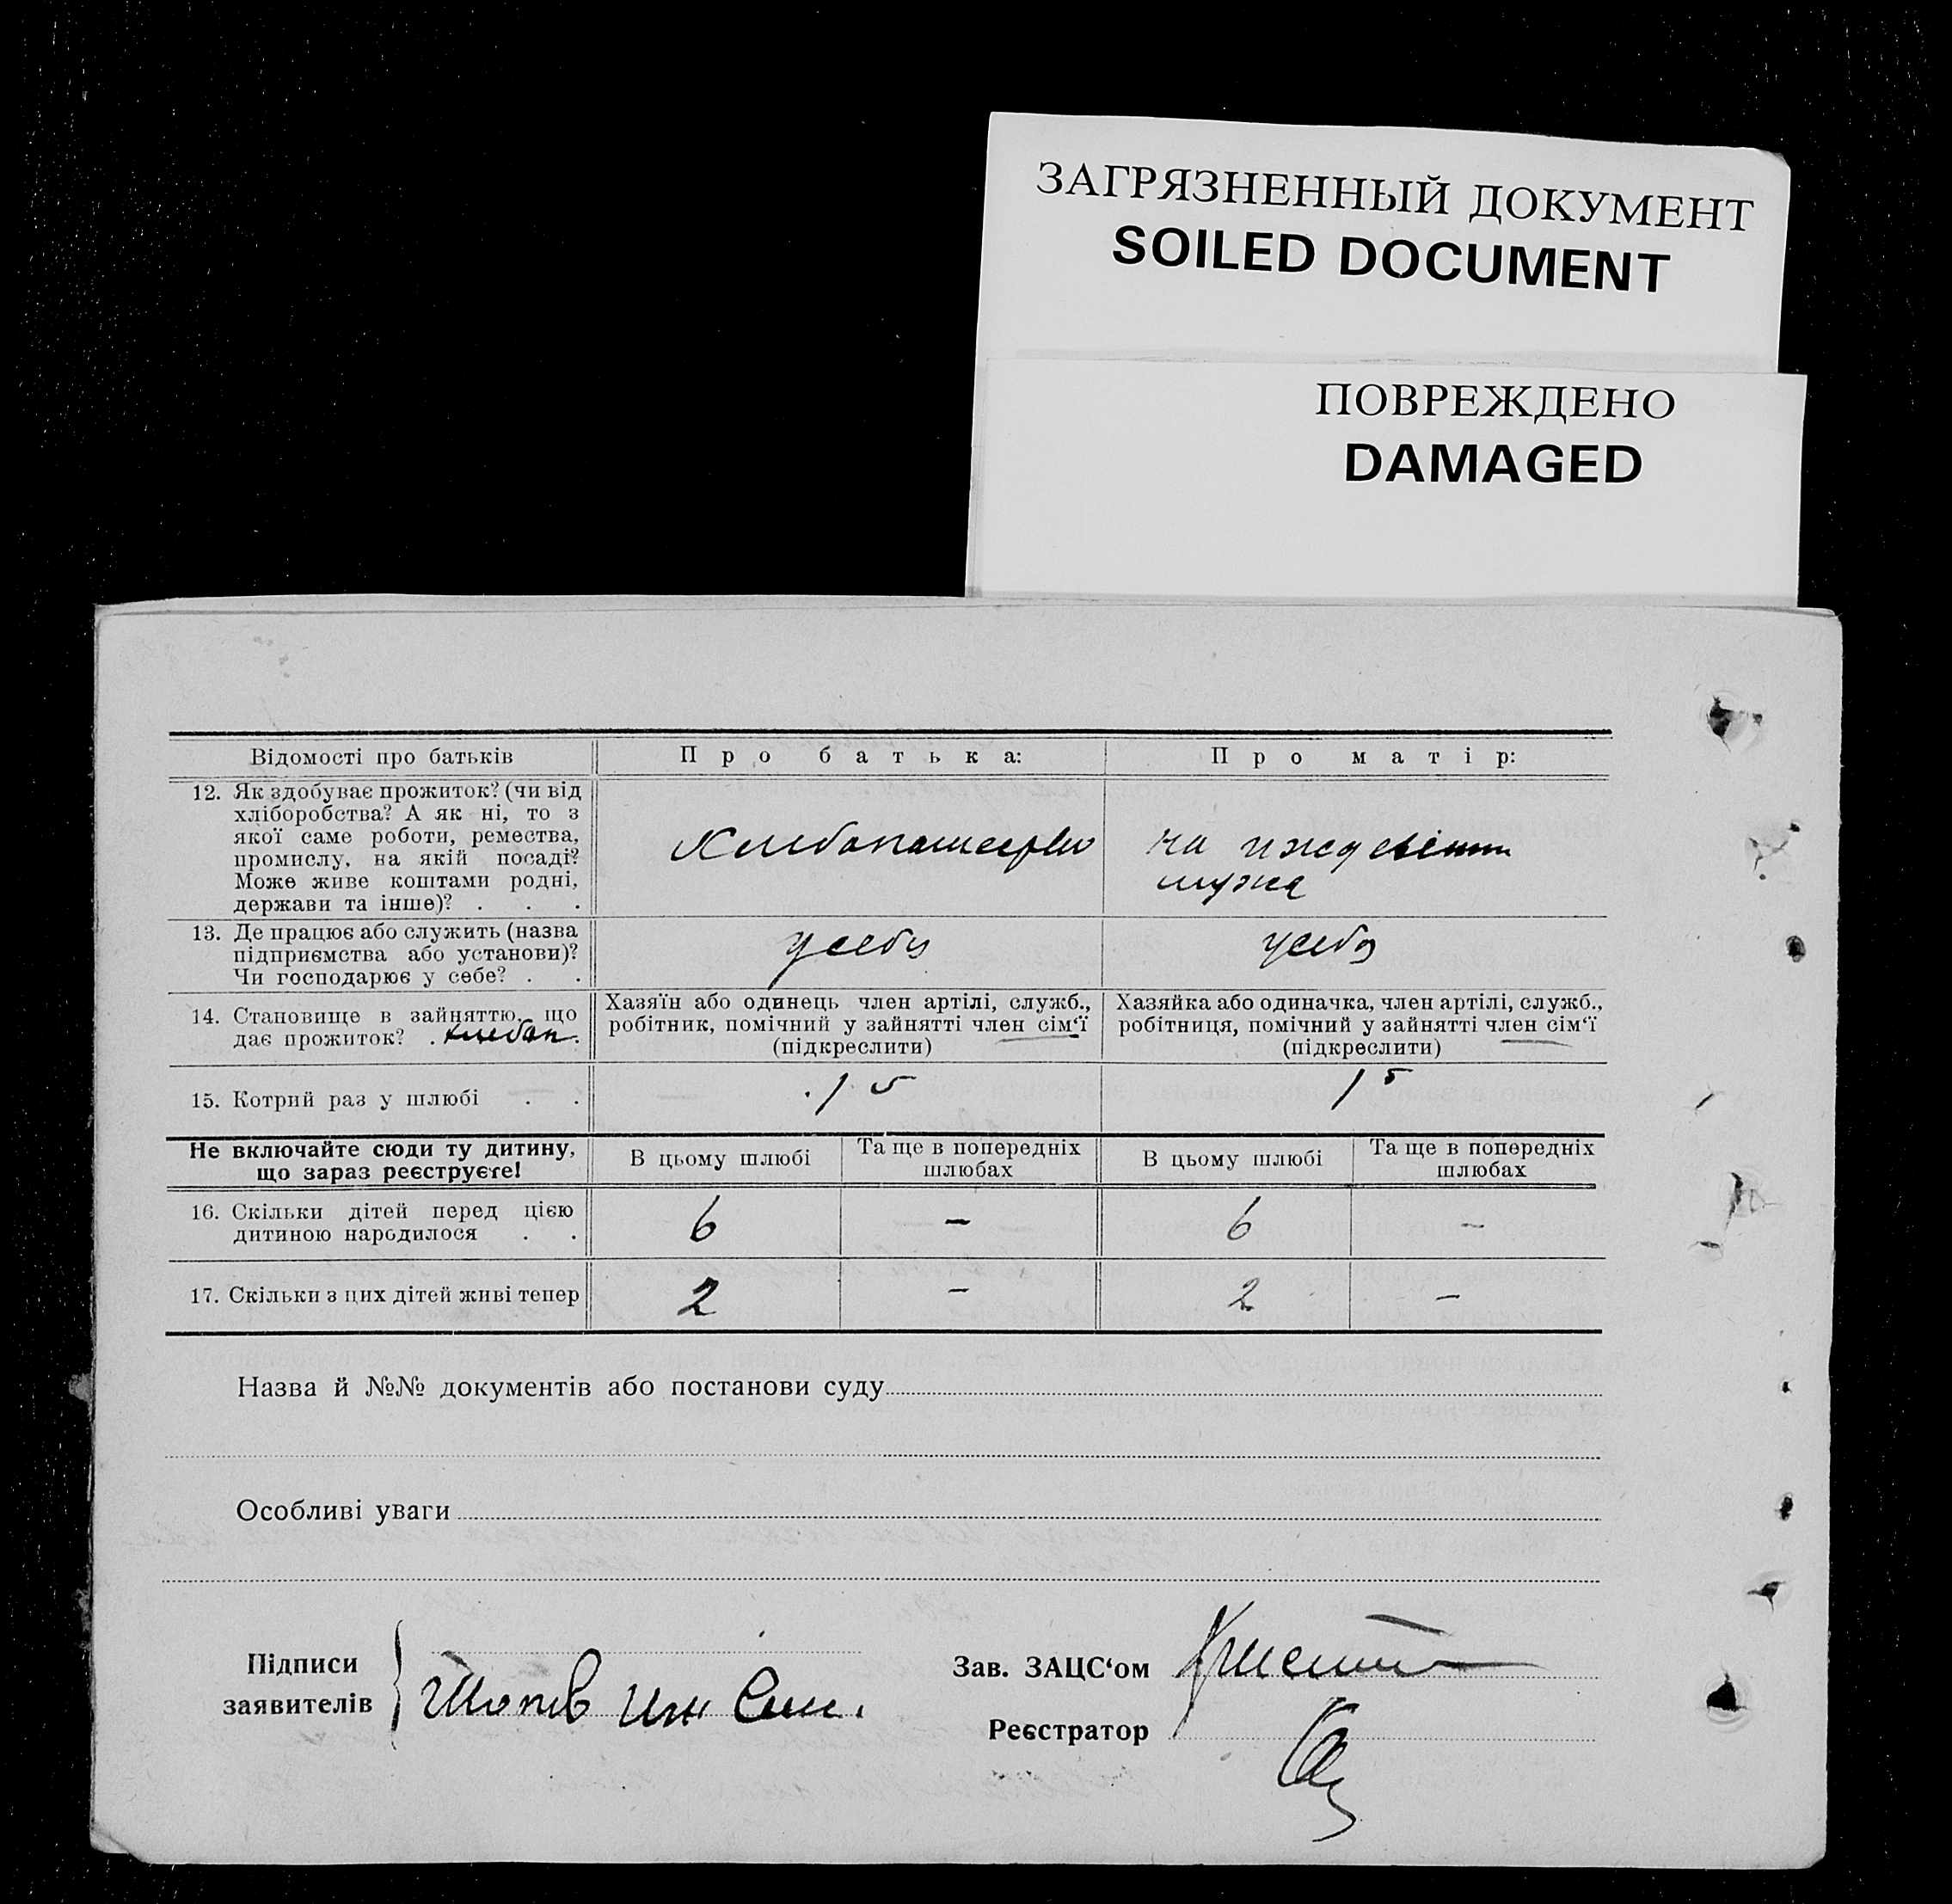 ЗАГРЯЗНЕННЫЙ ДОКУМЕНТ
SOILED DOCUMENT
ПОВРЕЖДЕНО
DAMAGED
Відомості про батьків
Про батька:
Про матір:
12. Як здобуває прожиток? (чи від
хліборобства? А як ні, то з
якої саме роботи, ремества,
промислу, на якій посаді?
Може живе коштами родні,
держави та інше)? . . .
на иждевінии
мужа
13. Де працює або служить (назва
підприємства або установи)?
Чи господарює у себе? . .
усебя
усебя
14. Становище в зайняттю, що
дає прожиток? . хлебоп.
Хазяїн або одинець член артілі, служб.,
робітник, помічний у зайнятті член сім‘ї
(підкреслити)
Хазяйка або одиначка, член артілі, служб.,
робітниця, помічний у зайнятті член сім‘ї
(підкреслити)
15. Котрий раз у шлюбі . .
1
1
Не включайте сюди ту дитину,
що зараз реєструєте!
В цьому шлюбі
Та ще в попередніх
шлюбах
В цьому шлюбі
Та ще в попередніх
шлюбах
16. Скільки дітей перед цією
дитиною народилося . .
6
—
6
—
17. Скільки з цих дітей живі тепер
2
—
2
—
Назва й №№ документів або постанови суду
Особливі уваги
Підписи
заявителів
Зав. ЗАЦС‘ом
Реєстратор